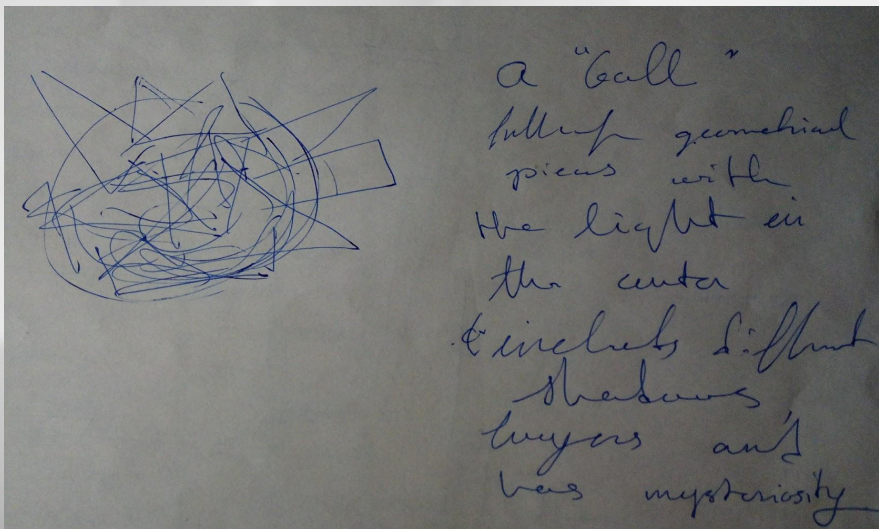 a "Ball"
full of geometrical
pieces with
the light in
the center
includes different
shadows,
layers and
has mysteriosity